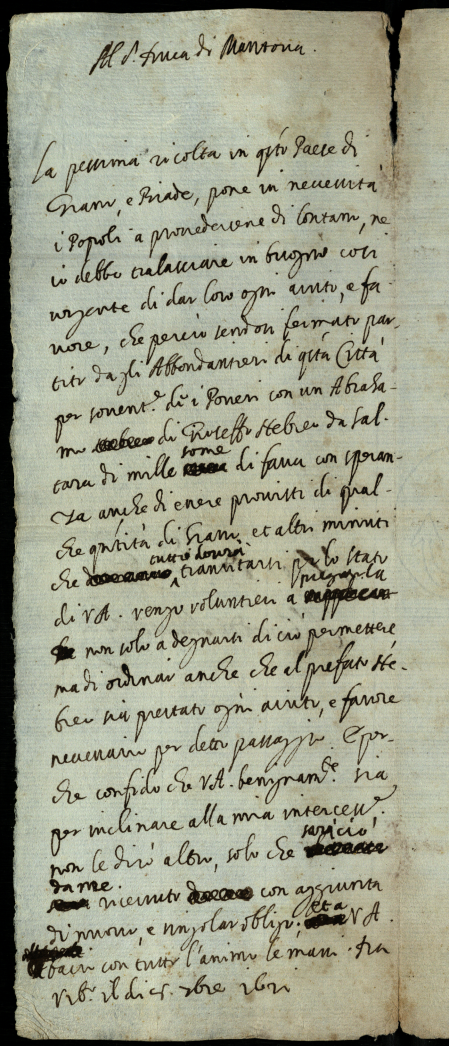 Al S.r Duca di Mantova.
La pessima ricolta in q̃sto Paese di
Grani, e Biade, pone in necessità
i Popoli a provedersene di lontani, ne
io debbo tralasciare in bisogno così
urgente di dar loro ogni aiuto, e fa-
vore, che perciò sendosi fermato par-
tito dagli Abbondantieri di q̃sta Città
per sovent.e de i Poveri con un Abraha-
mo di Gioseffo Hebreo da Sal-
tara di mille some di fava con speran-
za anche di essere provisti di qual-
che q̃ntità di Grani, et altri minuti
che tutto dovrà transitarsi per lo Stato
di V.A. vengo volontieri a pregar la
non solo a degnarsi di ciò permettere
ma di ordinar anche che al prefato He-
breo sia prestato ogni aiuto, e favore
necessario per detto passaggio. E per-
che confido che V.A. benignam.te sia
per inclinare alla mia intercess.e
non le dirò altro, solo che sarà ciò
da me ricevuto con aggiunta
di nuovo, e singolar obligo; et a V.A.
bacio con tutto l'animo le mani.
Urb.o il di 9bre 1621